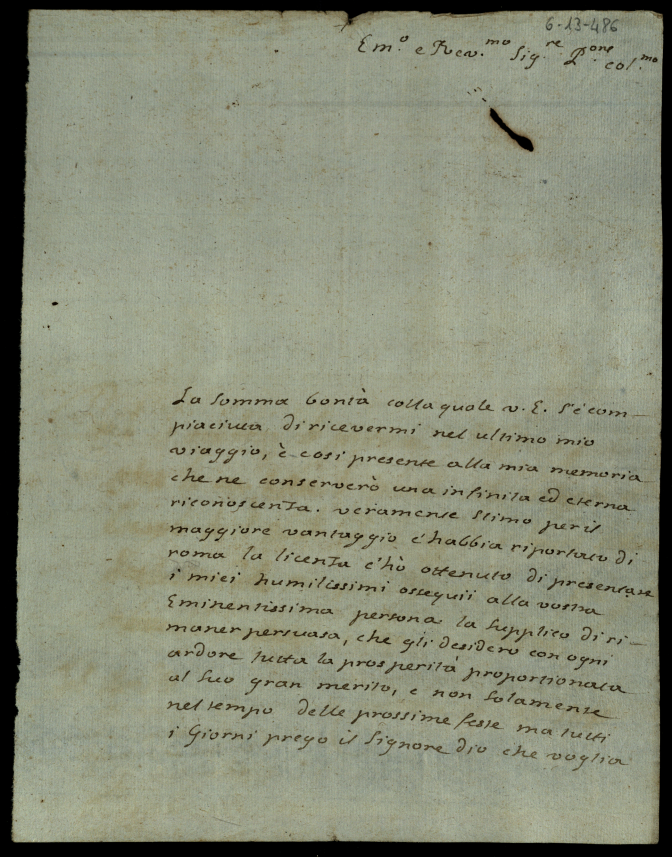 6-13-486
Em.o e Rev.mo Sig.re P.one col.mo
La somma bontà colla quale v. E. s'è com-
piaciuta di ricevermi nel ultimo mio
viaggio, è così presente alla mia memoria
che ne conserverò una infinita ed eterna
riconoscenza. veramente stimo per il
maggiore vantaggio c'habbia riportato di
roma la licenza c'hò ottenuto di presentare
i miei humilissimi ossequii alla vostra
Eminentissima persona la supplico di ri-
maner persuasa, che gli desidero con ogni
ardore tutta la prosperità proportionata
al suo gran merito, e non solamente
nel tempo delle prossime feste ma tutti
i Giorni prego il Signore dio che voglia